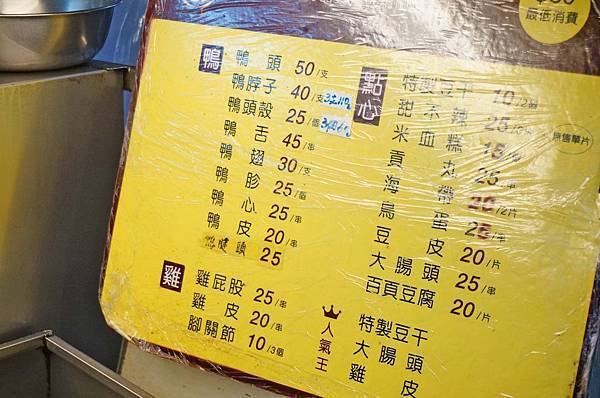 最低消費
鴨
鴨頭 50/支
鴨脖子 40/支 3支110
鴨頭殼 25/個
鴨舌 45/串
鴨翅 30/支
鴨胗 25/個
鴨心 25/串
鴨皮 20/串
25
雞
雞屁股 25/串
雞皮 20/串
腳關節 10/3個
點心
特製豆干 10/2個
甜不辣 25
米血糕 15
無售單片
貢丸 25/串
海帶 20/2片
鳥蛋 25/串
豆皮 20/片
大腸頭 25/串
百頁豆腐 20/片
人氣王
特製豆干
大腸頭
雞皮